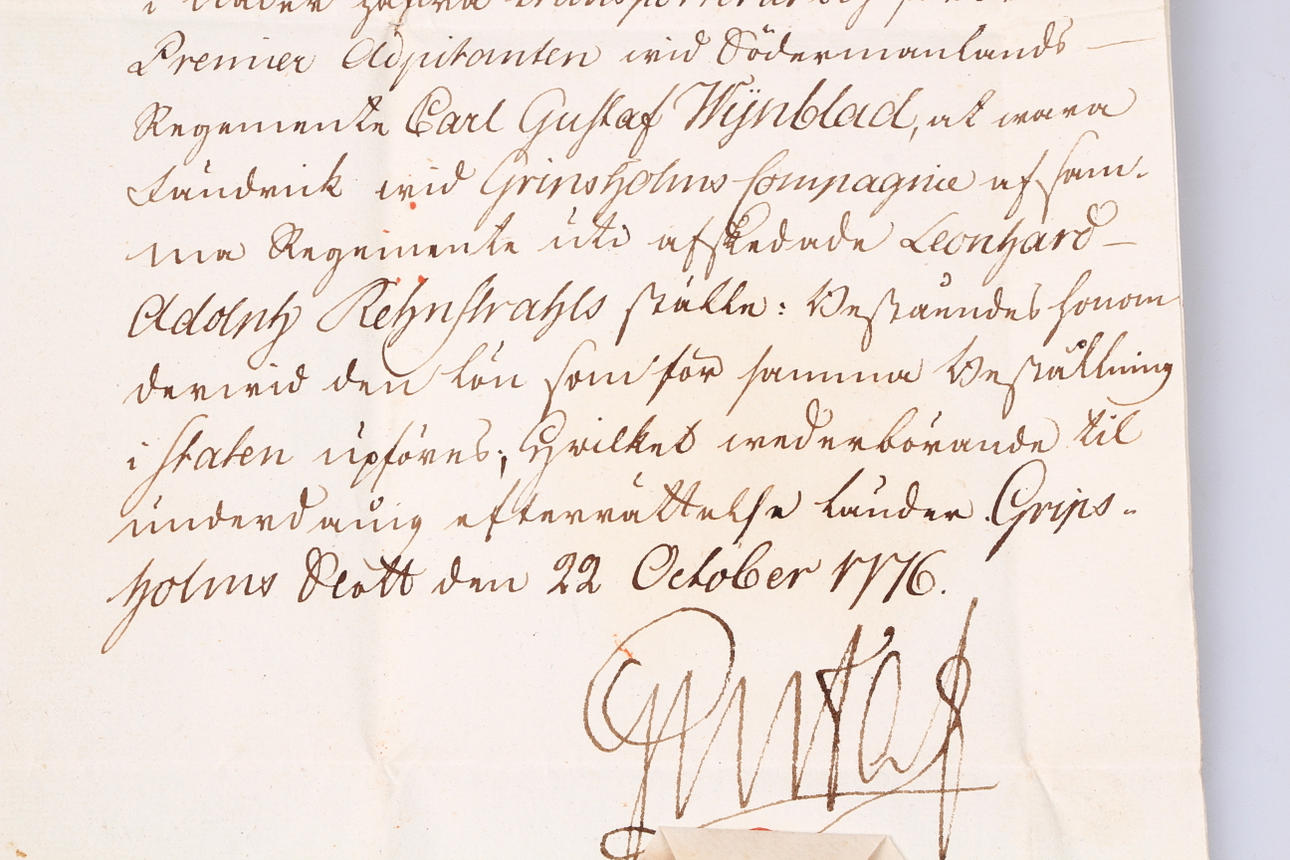 i Nåder hafva transporterat och
Premier Adjutanten wid Södermanlands
Regemente Carl Gustaf Wijnblad, at wara
Fändrick wid Gripsholms Compagnie af sam-
ma Regemente uti afskedade Leonhard
Adolph Rehnstrahls ställe: Beståendes honom
derwid den lön som för samma Beställning
i Staten upföres; Hvilket wederbörande til
underdånig efterrättelse länder. Grips-
holms Slott den 22 October 1776.
Gustaf